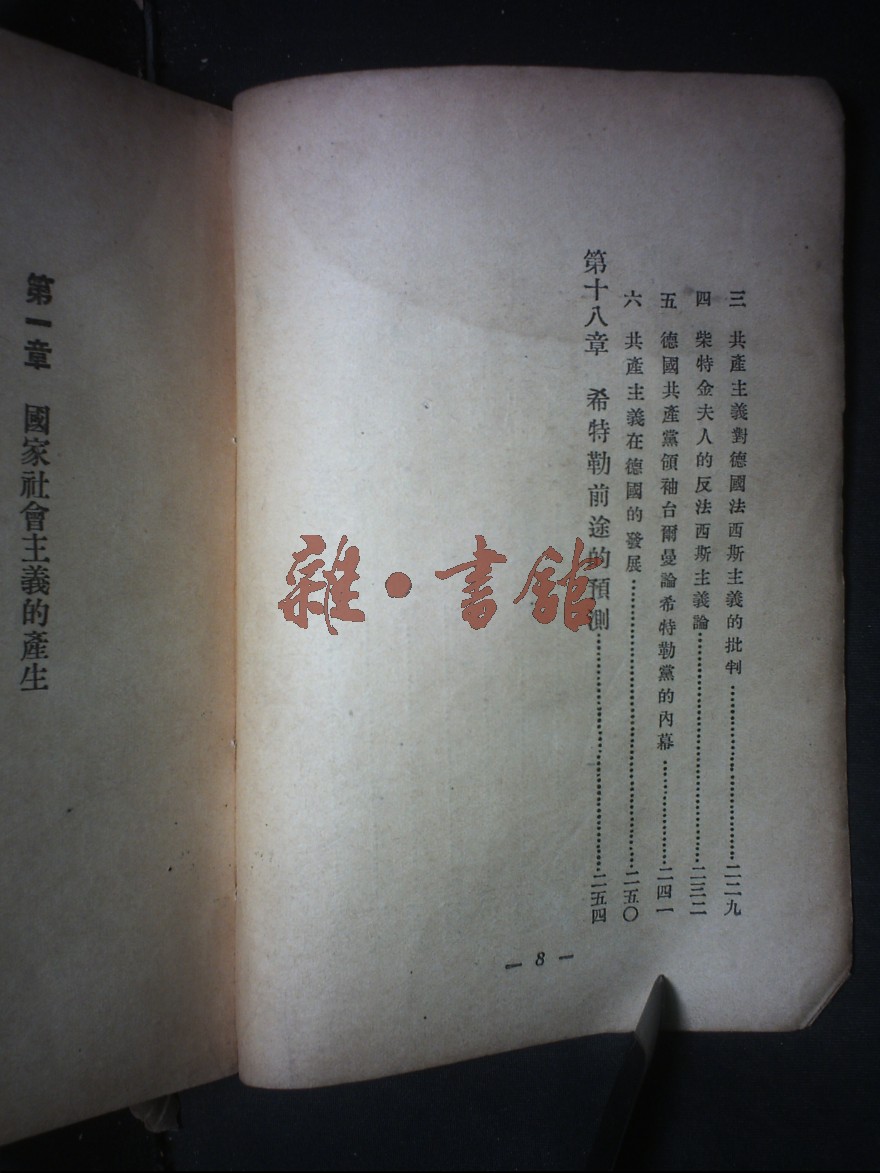 三 共產主義對德國法西斯主義的批判……………………二二九
四 柴特金夫人的反法西斯主義論……………………二三二
五 德國共產黨領袖台爾曼論希特勒黨的內幕……………………二四一
六 共產主義在德國的發展……………………二五〇
第十八章 希特勒前途的預測……………………二五四
— 8 —
第一章 國家社會主義的產生
雜·書館